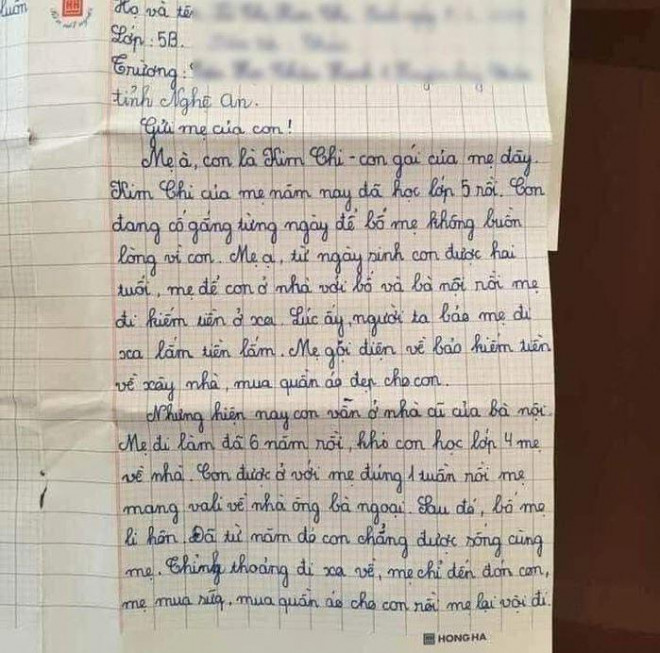 luôn
Họ và tên
Lớp: 5B.
Trường:
tỉnh Nghệ An.
Gửi mẹ của con!
Mẹ à, con là Kim Chi - con gái của mẹ đây.
Kim Chi của mẹ năm nay đã học lớp 5 rồi. Con
đang cố gắng từng ngày để bố mẹ không buồn
lòng vì con. Mẹ ạ, từ ngày sinh con được hai
tuổi, mẹ để con ở nhà với bố và bà nội rồi mẹ
đi kiếm tiền ở xa. Lúc ấy, người ta bảo mẹ đi
xa lắm tiền lắm. Mẹ gọi điện về bảo kiếm tiền
về xây nhà, mua quần áo đẹp cho con.
Nhưng hiện nay con vẫn ở nhà cũ của bà nội.
Mẹ đi làm đã 6 năm rồi, khi con học lớp 4 mẹ
về nhà. Con được ở với mẹ đúng 1 tuần rồi mẹ
mang vali về nhà ông bà ngoại. Sau đó, bố mẹ
li hôn. Đã từ năm đó con chẳng được sống cùng
mẹ. Thỉnh thoảng đi xa về, mẹ chỉ đến đón con,
mẹ mua sữa, mua quần áo cho con rồi mẹ lại vội đi.
HONG HA